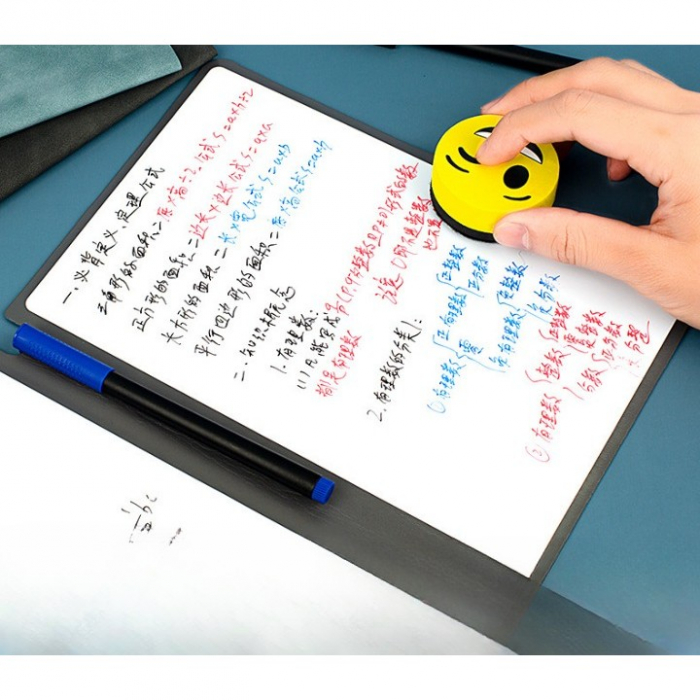 一. 必背定义、定理公式
三角形的面积=底×高÷2. 公式 S=a×h÷2
正方形的面积=边长×边长 公式 S=a×a
长方形的面积=长×宽 公式 S=a×b
平行四边形的面积=底×高 公式 S=a×h
二. 知识概念
1. 有理数:
(1) 凡能写成 形式的数
都是有理数
2. 有理数的分类:
① 有理数 正有理数 正整数 正分数
零
负有理数 负整数 负分数
② 有理数 整数 正整数 零 负整数
分数 正分数
abc